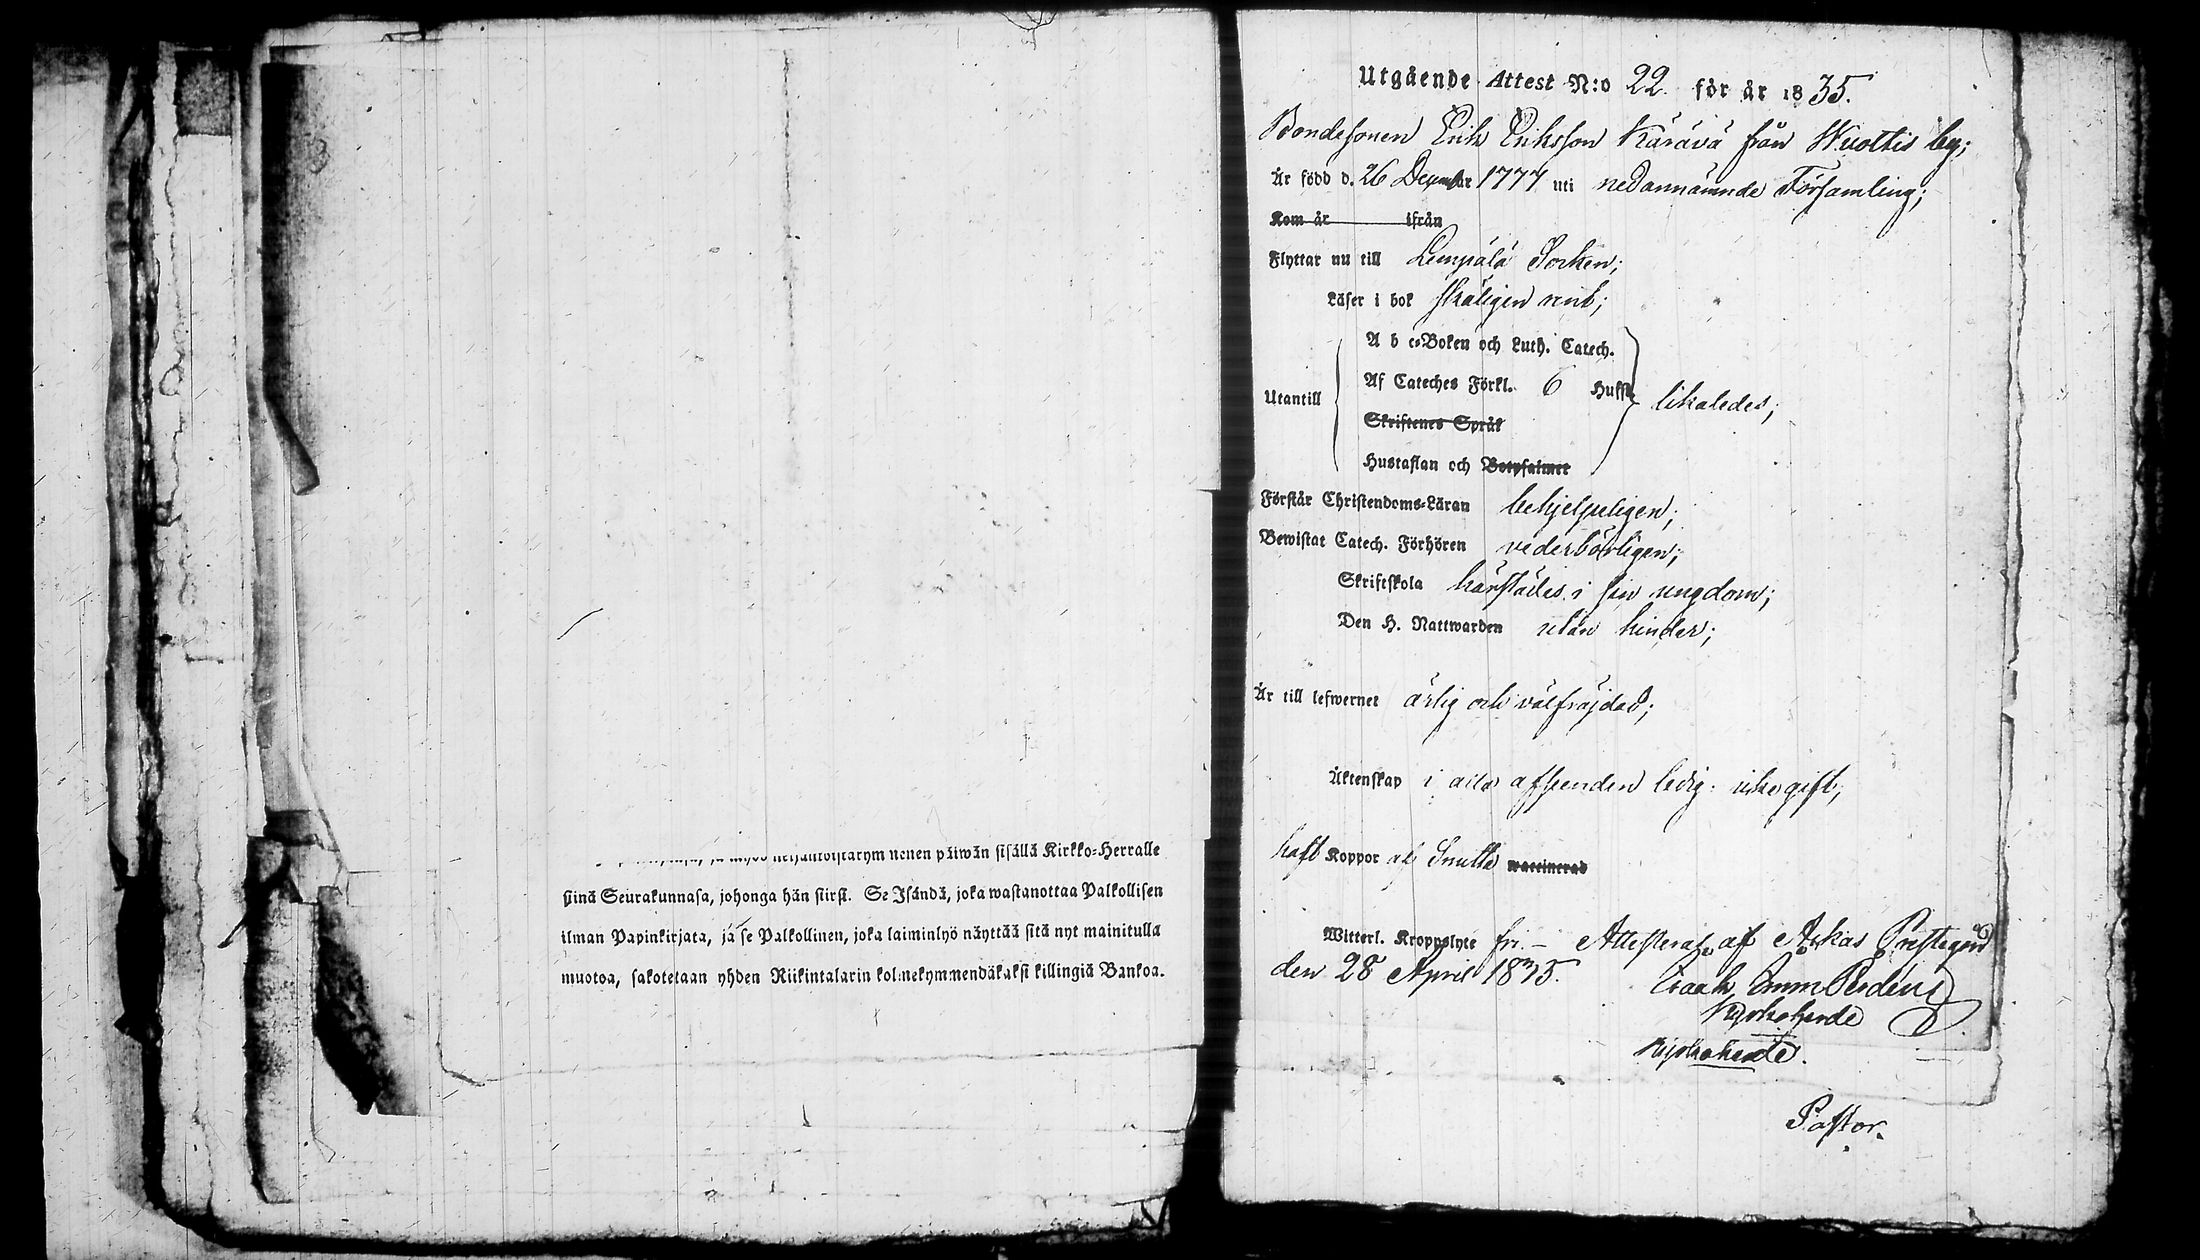 nenen päiwän sisällä Kirkko-Herralle
siinä Seurakunnasa, johonga hän siirsi. Se Isändä, joka wastanottaa Palkollisen
ilman Papinkirjata, ja se Palkollinen, joka laiminlyö näyttää sitä nyt mainitulla
muotoa, sakotetaan yhden Riikintalarin kolmekymmendäkaksi killingiä Bankoa.
Utgående Attest N:o 22. för år 1835.
Bondesonen Erik Eriksson Kärävä från Wuottis by;
Är född d. 26 December 1777 uti nedannämnde Församling;
Kom år ifrån
Flyttar nu till Lempälä Socken;
Läser i bok skäligen rent;
A b c-Boken och Luth. Catech.
Utantill Af Cateches Förkl. 6 Hufst. likaledes;
Skriftenes Språk
Hustaflan och Botpsalmer
Förstår Christendoms-Läran behjelpeligen;
Bewistat Catech. Förhören vederbörligen;
Skriftskola härstädes i sin ungdom;
Den H. Nattwarden utan hinder;
Är till lefwernet ärlig och välfräjdad;
Äktenskap i alla afseenden ledig: icke gift;
haft Koppor af Smitta waccinerad
Witterl. Kroppslyte fri. — Attesteras af Prestegård
den 28 April 1835. Isaak Emm
Kyrkoherde
Kyrkoherde.
Pastor.